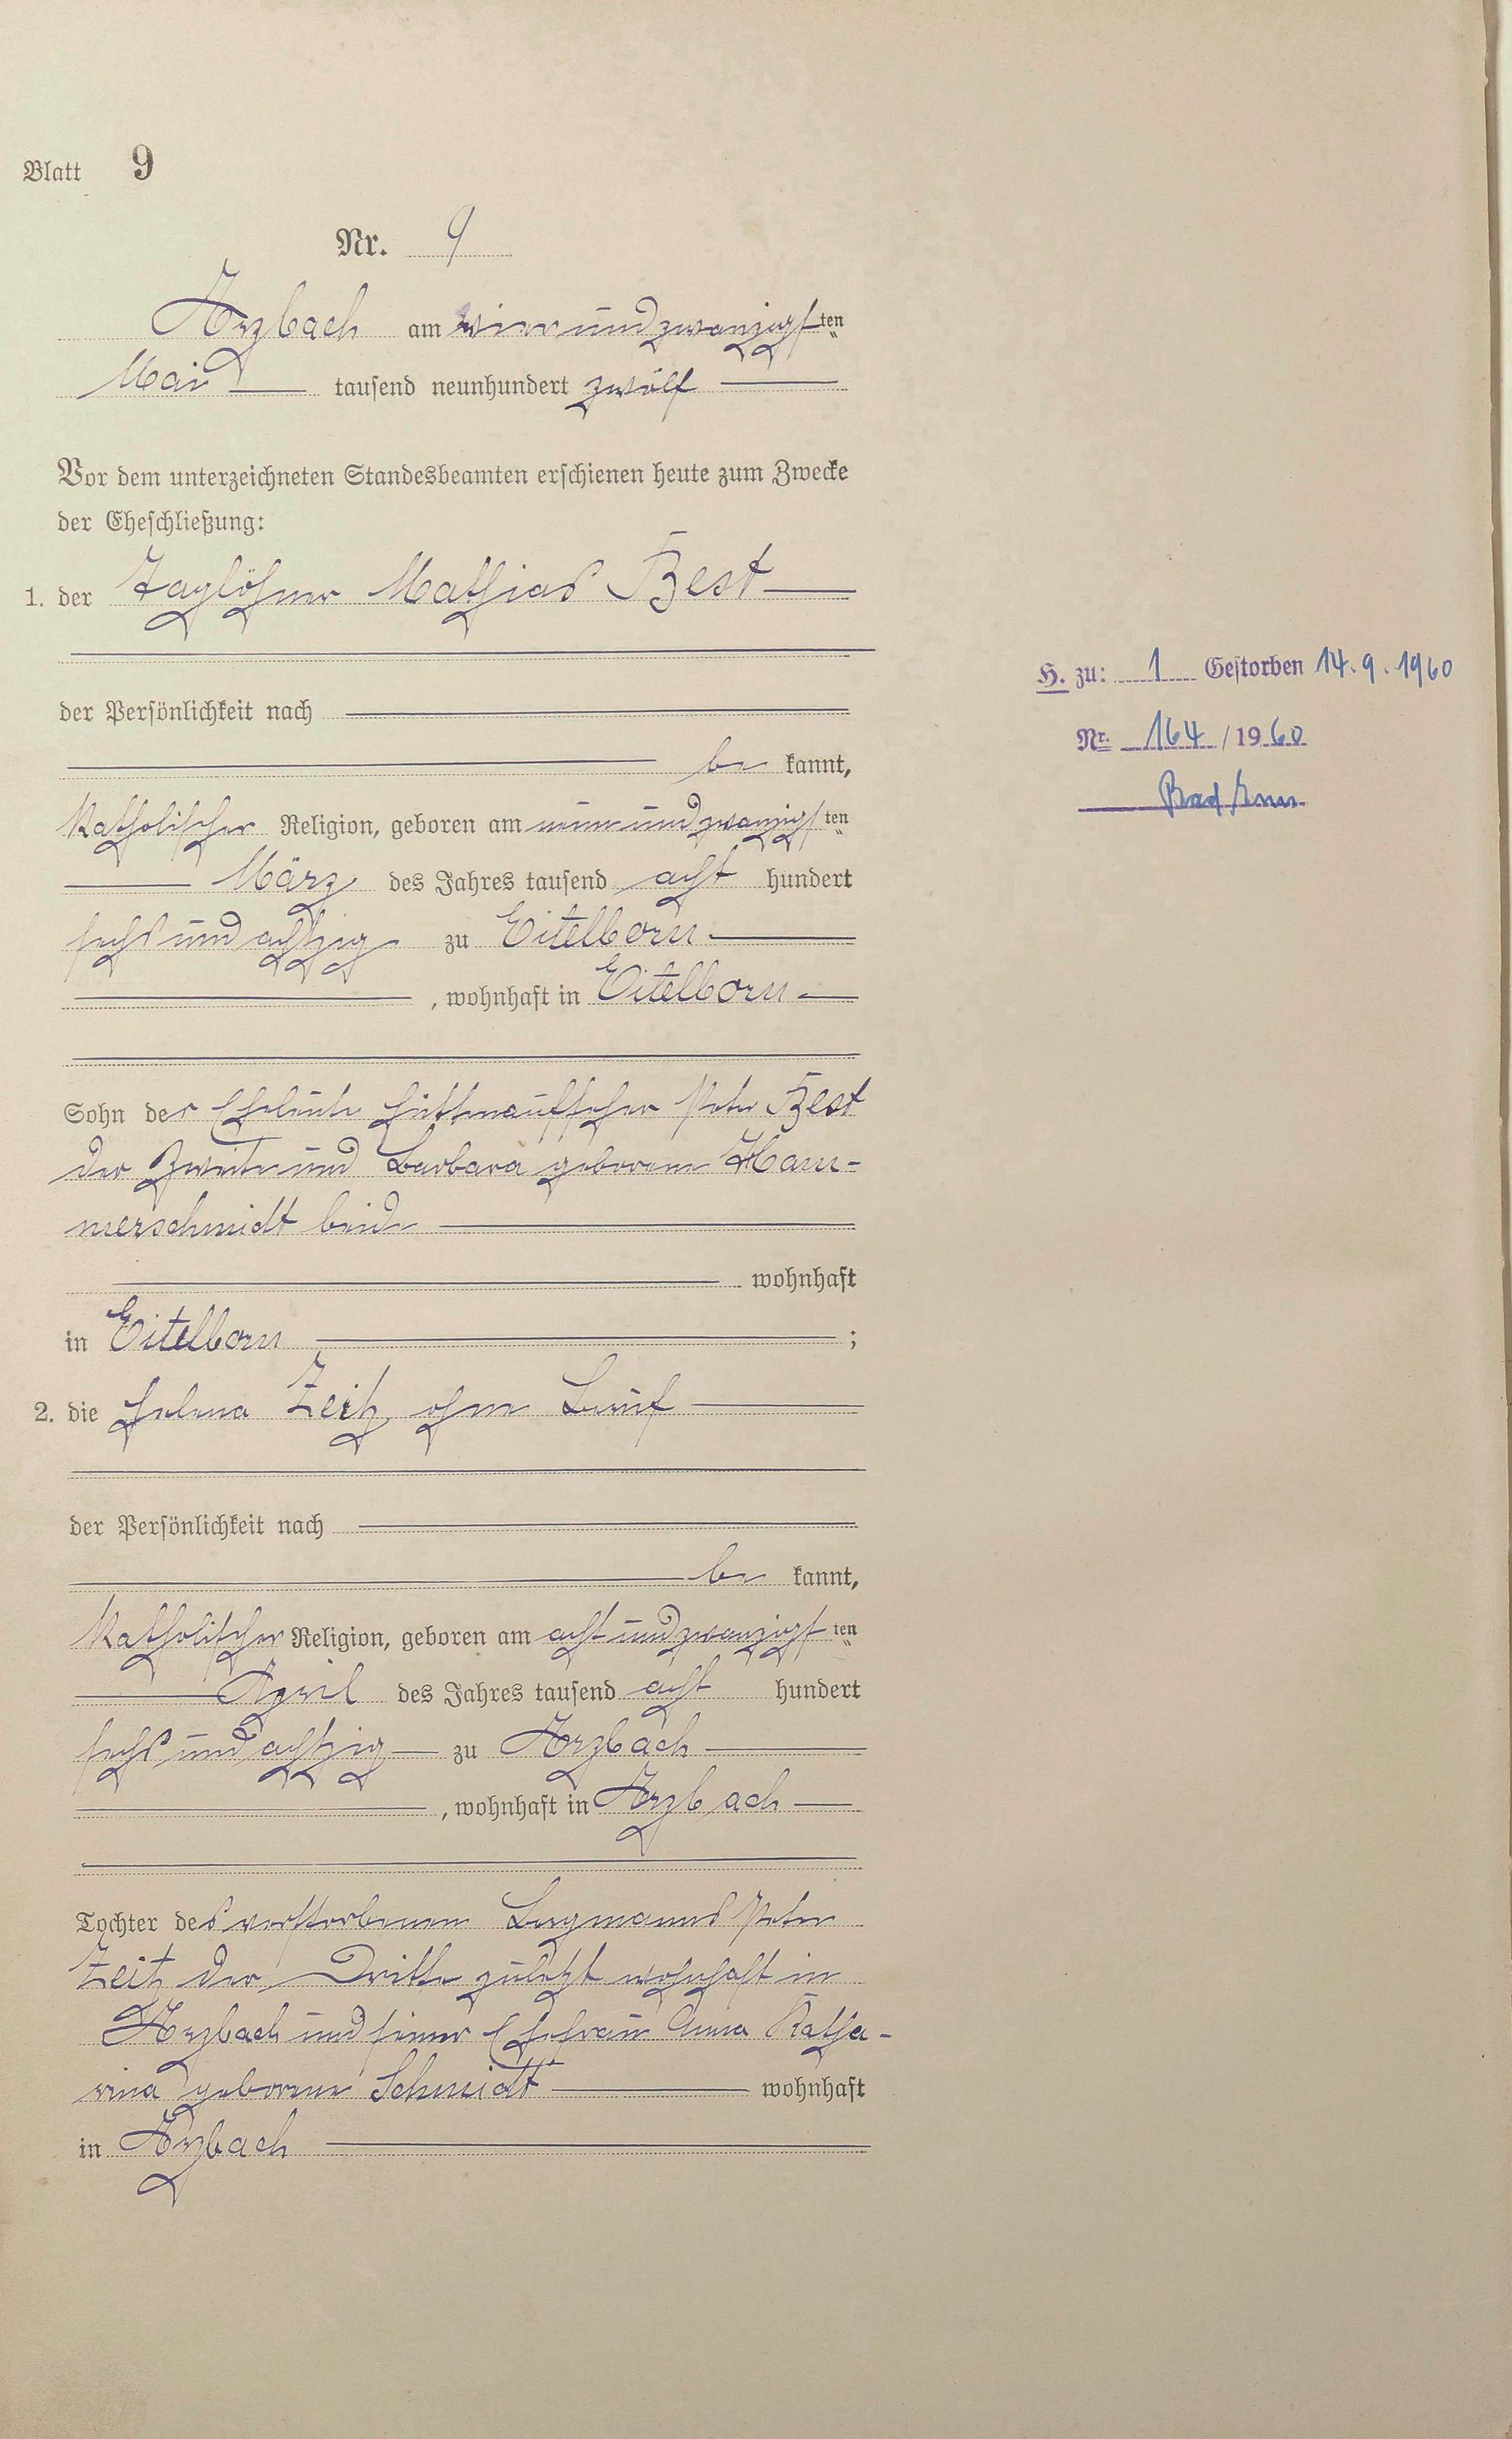 Blatt 9
Nr. 9
Arzbach am vierundzwanzigsten
Mai tausend neunhundert zwölf
Vor dem unterzeichneten Standesbeamten erschienen heute zum Zwecke
der Eheschließung:
1. der Taglöhner Mathias Best
der Persönlichkeit nach
be kannt,
Katholischer Religion, geboren am neunundzwanzigsten
März des Jahres tausend acht hundert
sechsundachtzig zu Eitelborn
, wohnhaft in Eitelborn
Sohn der Eheleute Hüttenaufseher Peter Best
der Zweite und Barbara geborene Ham-
merschmidt beide
wohnhaft
in Eitelborn ;
2. die Helena Zeitz, ohne Beruf
der Persönlichkeit nach
be kannt,
Katholischer Religion, geboren am achtundzwanzigsten
April des Jahres tausend acht hundert
sechsundachtzig zu Arzbach
, wohnhaft in Arzbach
Tochter des verstorbenen Bergmanns Peter
Zeitz der Dritte zuletzt wohnhaft in
Arzbach und seiner Ehefrau Anna Katha-
rina geborene Schmidt wohnhaft
in Arzbach
H. zu: 1 Gestorben 14.9.1960
Nr. 164 / 1960
Bad Ems